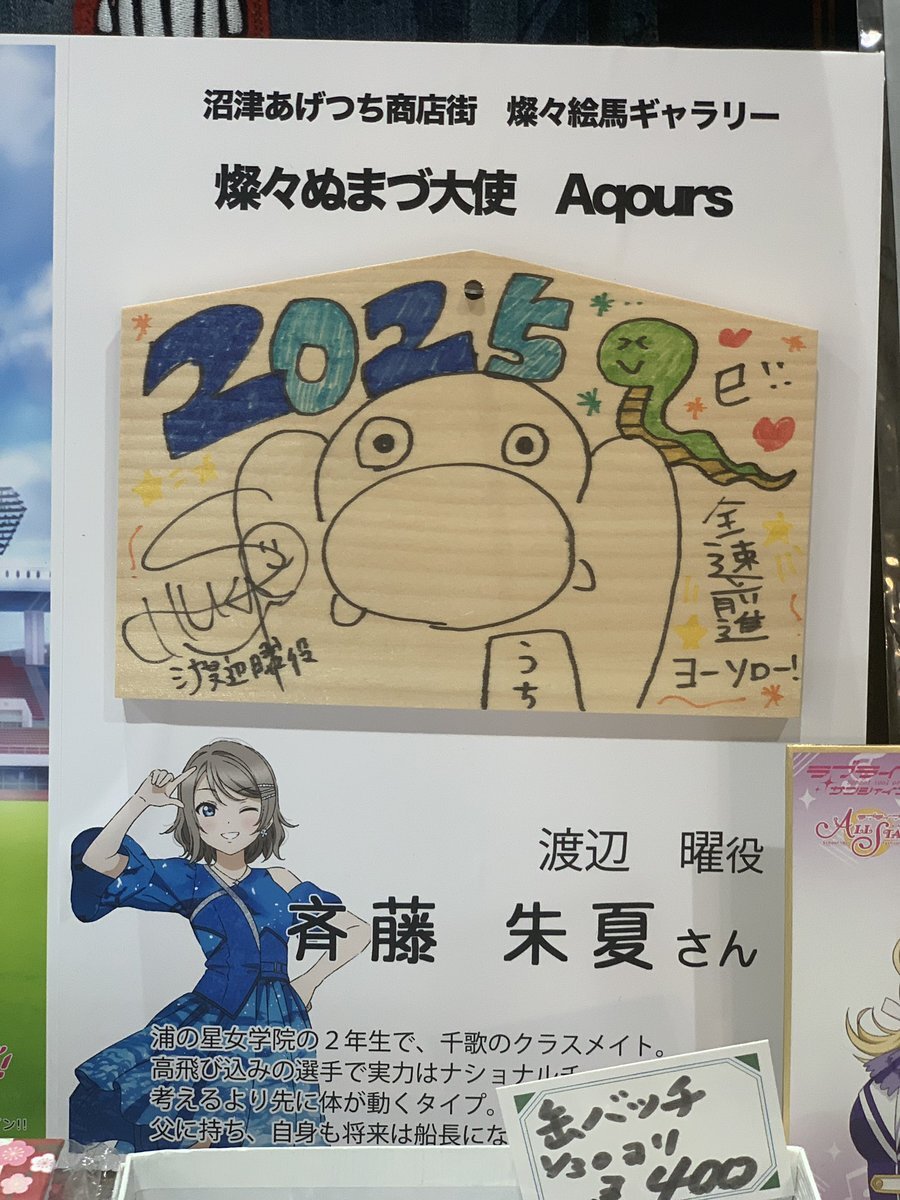 沼津あげつち商店街　燦々絵馬ギャラリー
燦々ぬまづ大使　Aqours
2025
巳!!
全速前進
ヨーソロー!
うち
渡辺曜役
渡辺　曜役
斉藤　朱夏さん
浦の星女学院の２年生で、千歌のクラスメイト。
高飛び込みの選手で実力はナショナルチ
考えるより先に体が動くタイプ。
父に持ち、自身も将来は船長にな
缶バッチ
400
ラブライ
サンシャイン
ALL STA
ン!!